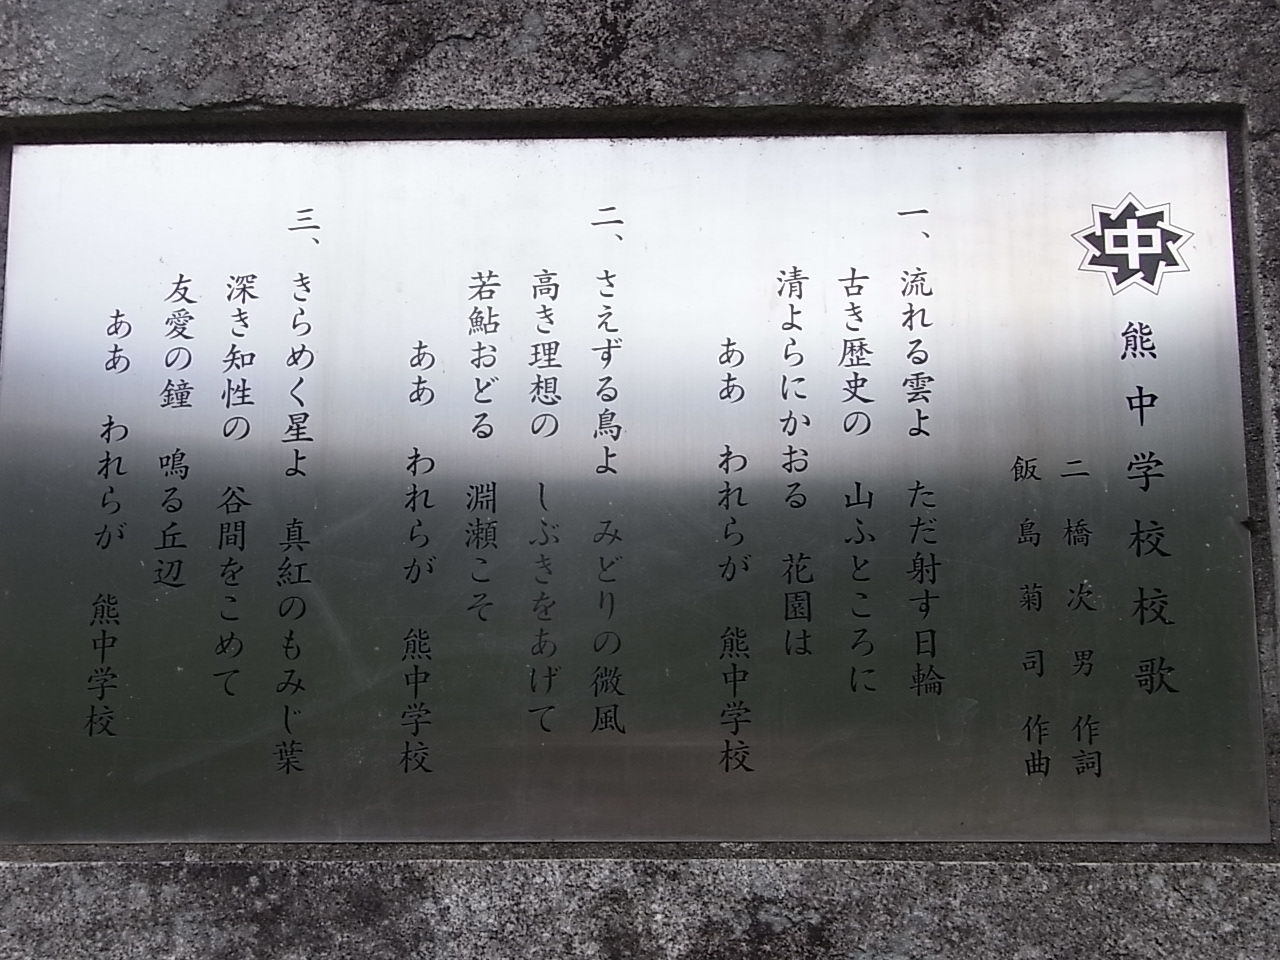 中
熊中学校校歌
二橋次男 作詞
飯島菊司 作曲
一、流れる雲よ ただ射す日輪
古き歴史の 山ふところに
清よらにかおる 花園は
ああ われらが 熊中学校
二、さえずる鳥よ みどりの微風
高き理想の しぶきをあげて
若鮎おどる 淵瀬こそ
ああ われらが 熊中学校
三、きらめく星よ 真紅のもみじ葉
深き知性の 谷間をこめて
友愛の鐘 鳴る丘辺
ああ われらが 熊中学校